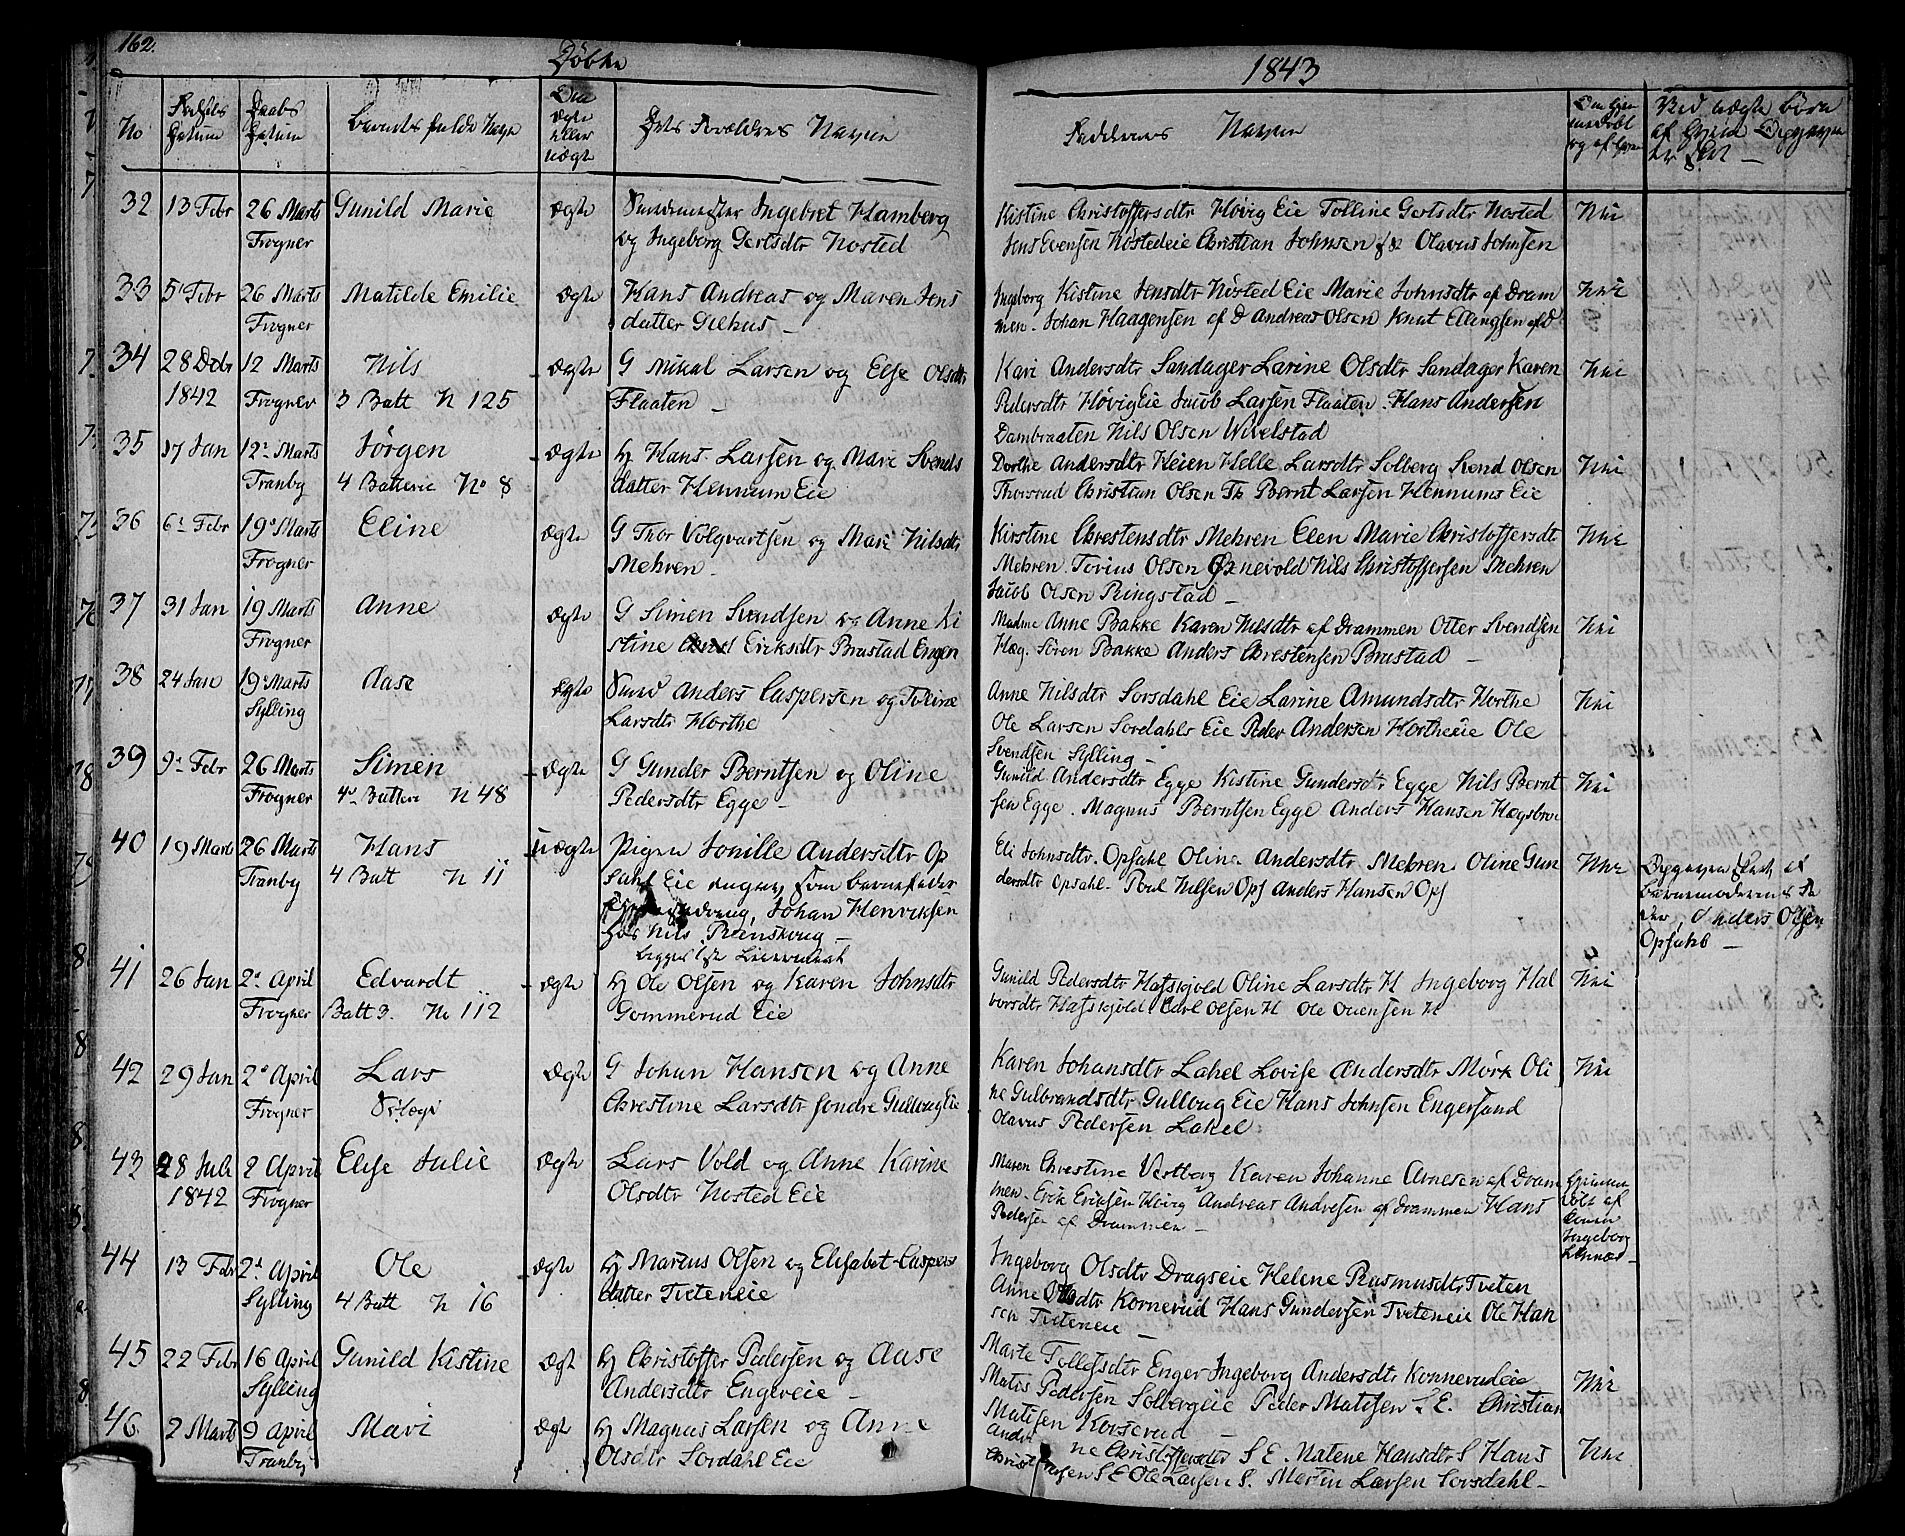 162.
Döbte
1843
No
Fødsels Datum
Daabs Datum
Barnets fulde Navn
Om ægte eller uægte
Dets Forældres Navne
Faddernes Navne
32 13 Febr 26 Marts Gunild Marie ægte Ingebret Hamberg Kistine Christoffersdtr Høvig Eie Tolline Gertsdtr Nosted Nei
Frogner og Ingeborg Gertsdtr Nosted Jens Evensen Nøstedeie Christian Johnsen Olavus Johnsen
33 5 Febr 26 Marts Matilde Emilie ægte Hans Andreas og Maren Jens Ingeborg Kistine Jensdtr Nøsted Eie Marie Johnsdtr af Dram Nei
Frogner datter Gilhus men. Johan Haagensen af D Andreas Olsen Knut Ellingsen af D
34 28 Decbr 12 Marts Nils Ægte G Mikal Larsen og Else Olsdtr Kari Andersdtr Sandager Larine Olsdtr Sandager Karen Nei
1842 Frogner 3 Batt N 125 Flaaten Pedersdtr Høvig Eie Jacob Larsen Flaaten. Hans Andersen
Dambraaten Nils Olsen Wivelstad
35 17 Jan 12 Marts Jörgen ægte Hj Hans Larsen og Mari Svends Dorthe Andersdtr Heien Helle Larsdtr Solberg Svend Olsen Nei
Tranby 4 Batterie No 8 datter Hennum Eie Thorsrud Christian Olsen Th Bernt Larsen Hennums Eie
36 6 Febr 19 Marts Eline ægte G Thor Volqvartsen og Mari Nilsdtr Kirstine Chrestensdtr Mehren Elen Marie Christoffersdtr Nei
Frogner Mehren Mehren. Tovius Olsen Ørnevold Nils Christoffersen Mehren
Jacob Olsen Ringstad
37 31 Jan 19 Marts Anne Ægte G Simen Svendsen og Anne Ki Madme Anne Bakke Karen Nilsdtr af Drammen Otter Svendsen Nei
Frogner stine Eriksdtr Brustad Engen Hæg. Sören Bakke Anders Chrestensen Brustad
38 24 Jan 19 Marts Aase Ægte Anders Caspersen og Torine Anne Nilsdtr Sorsdahl Eie Larine Amundsdtr Horthe Nei
Sylling Larsdtr Horthe Ole Larsen Sordahls Eie Peder Andersen Hortheeie Ole
Svendsen Sylling
39 9 Febr 26 Marts Simen Ægte G Gunder Berntsen og Oline Gunild Andersdtr Egge Kistine Gundersdtr Egge Nils Bernt Nei
Frogner 4 Batteri N 48 Pedersdtr Egge sen Egge. Magnus Berntsen Egge Anders Hansen Hægsbroe
40 19 Marts 26 Marts Hans uægte Pigen Jonille Andersdtr Op Eli Johnsdtr. Opsahl Oline Andersdtr Mehren Oline Gun Nei
Tranby 4 Batt N 11 sahl Eie som barnefader dersdtr Opsahl. Poul Nilsen Ops Anders Hansen Ops
Johan Henriksen barnemoderens Fa
hos Nils der Anders Olsen
Opsahl
41 26 Jan 2 April Edvardt ægte Hj Ole Olsen og Karen Johnsdtr Gunild Pedersdtr Hafskjold Oline Larsdtr H Ingeborg Hal Nei
Frogner Batt 3. No 112 Gommerud Eie vorsdtr Hafskjold Carl Olsen H Ole Ouensen H
42 29 Jan 2 April Lars Ægte G Johan Hansen og Anne Karen Johansdtr Lahel Lovise Andersdtr Mörk Oli Nei
Frogner Chrestine Larsdtr søndre Gullaug Eie ne Gulbrandsdtr Gulloug Eie Hans Johnsen Engersand
Olavus Pedersen Lahel
43 28 Juli 2 April Else Julie Ægte Lars Vold og Anne Karine Maren Chrestine Vestborg Karen Johanne Arnesen af Dram Hjemme
1842 Frogner Olsdtr Nosted Eie men. Erik Eriksen Høvig Andreas Andresen af Drammen Hans døbt af
Pedersen af Drammen Ingeborg
44 13 Febr 2 April Ole ægte Hj Marcus Olsen og Elisabet Caspers Ingeborg Olsdtr Dragseie Helene Rasmusdtr Tveten
Sylling 4 Batt N 16 datter Tveteneie Anne Olsdtr Kornerud Hans Gundersen Tveteneie Ole Han
sen Tveteneie
45 22 Febr 16 April Gunild Kistine Ægte Hj Christoffer Pedersen og Aase Marte Tollefsdtr Enger Ingeborg Andersdtr Konnerudeie Nei
Sylling Andersdtr Engereie Matis Pedersen Solbergeie Peder Matisen S. E. Christian
Matisen Korserud
46. 2 Marts 9 April Mari ægte Hj Magnus Larsen og Anne ne Christoffersdtr S E. Matene Hansdtr S Hans Nei
Tranby Olsdtr Sordahl Eie sen S E Ole Larsen S. Martin Larsen Sorsdahl